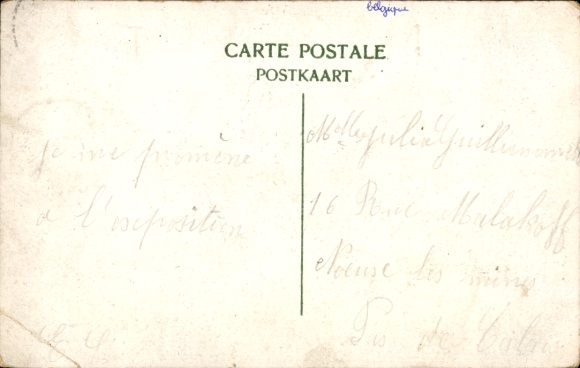 belgique
CARTE POSTALE
POSTKAART
je me promène
a l'exposition
Melle Julia
16 Rue Malakoff
Noeux les mines
Pas de Calais